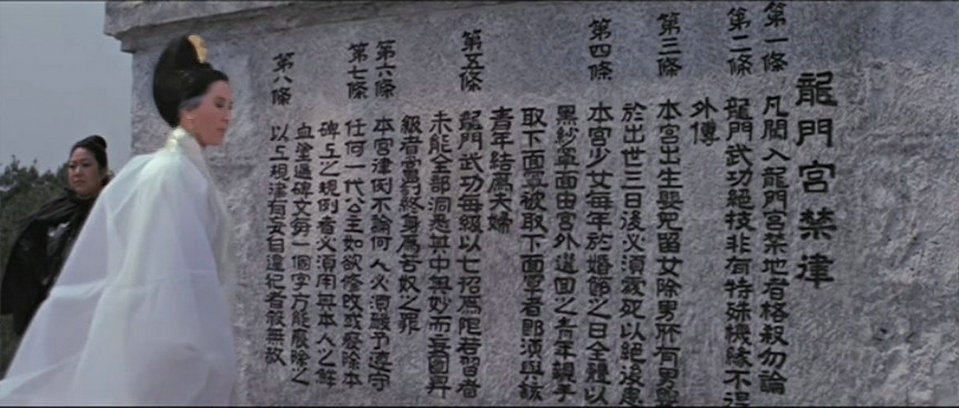 龍門宮禁律
第一條 凡闖入龍門宮禁地者格殺勿論
第二條 龍門武功絕技非有特殊機緣不得
外傳
第三條 本宮出生嬰兒留女除男所有男嬰
於出世三日後必須處死以絕後患
第四條 本宮少女每年於婚節之日全體以
黑紗罩面由宮外選回之青年親手
取下面罩被取下面罩者即須與該
青年結爲夫婦
第五條 龍門武功每級以七招爲限若習者
未能全部洞悉其中奧妙而妄圖昇
級者當罰終身爲苦奴之罪
第六條 本宮律例不論何人必須嚴予遵守
第七條 任何一代公主如欲修改或廢除本
碑上之規例者必須用其本人之鮮
血塗遍碑文每一個字方能廢除之
第八條 以上規律有妄自違犯者殺無赦